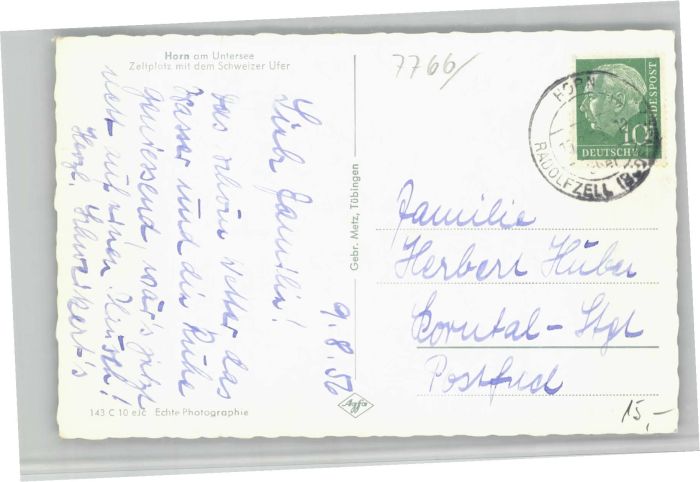 Horn am Untersee
Zeltplatz mit dem Schweizer Ufer
7766/
9.8.56
Lieb Familie!
Das schöne Wetter das
Wasser und die Ruhe
geniessend wär's jetzt
nett auf einen
Herzl.
Gebr. Metz, Tübingen
HORN
RADOLFZELL
10
DEUTSCHE
BUNDESPOST
Familie
Herbert Huber
Korntal - Stgt
Postfach
143 C 10 eJc Echte Photographie
Agfa
15,-